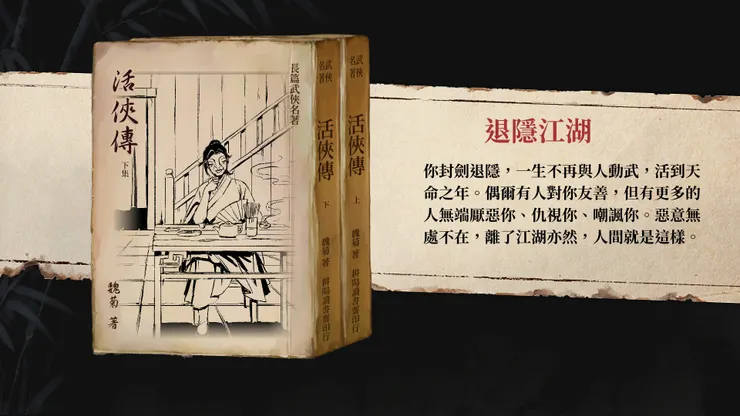 活俠傳
下集
魏菊 著
長篇武俠名著
武俠名著
活俠傳
下
魏菊 著
耕陽讀書齋印行
武俠名著
活俠傳
上
魏菊 著
耕陽讀書齋印行
退隱江湖
你封劍退隱，一生不再與人動武，活到天
命之年。偶爾有人對你友善，但有更多的
人無端厭惡你、仇視你、嘲諷你。惡意無
處不在，離了江湖亦然，人間就是這樣。